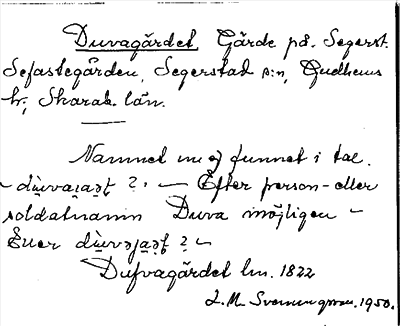 Duvagärdet Gärde på Segerst.
Sefastegården, Segerstad s:n, Gudhems
hd, Skarab. län.
Namnet nu ej funnet i tal.
- dùvaɟaɹət ? , — Efter person- eller
soldatnamn Duva möjligen -
Euer dùvəɟaɹət ? -
Dufvagärdet lm. 1822
L. M. Svennungsson. 1950.